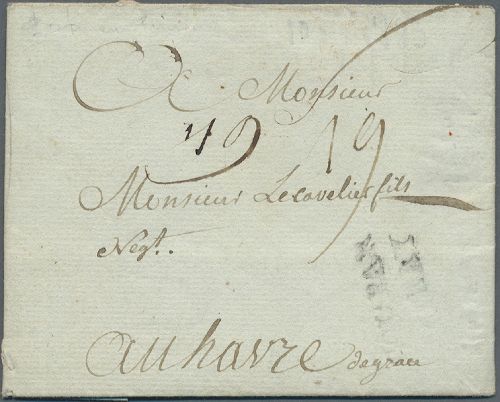 A Monsieur
19
Monsieur Lecavelier fils
Negt.
au havre de grace